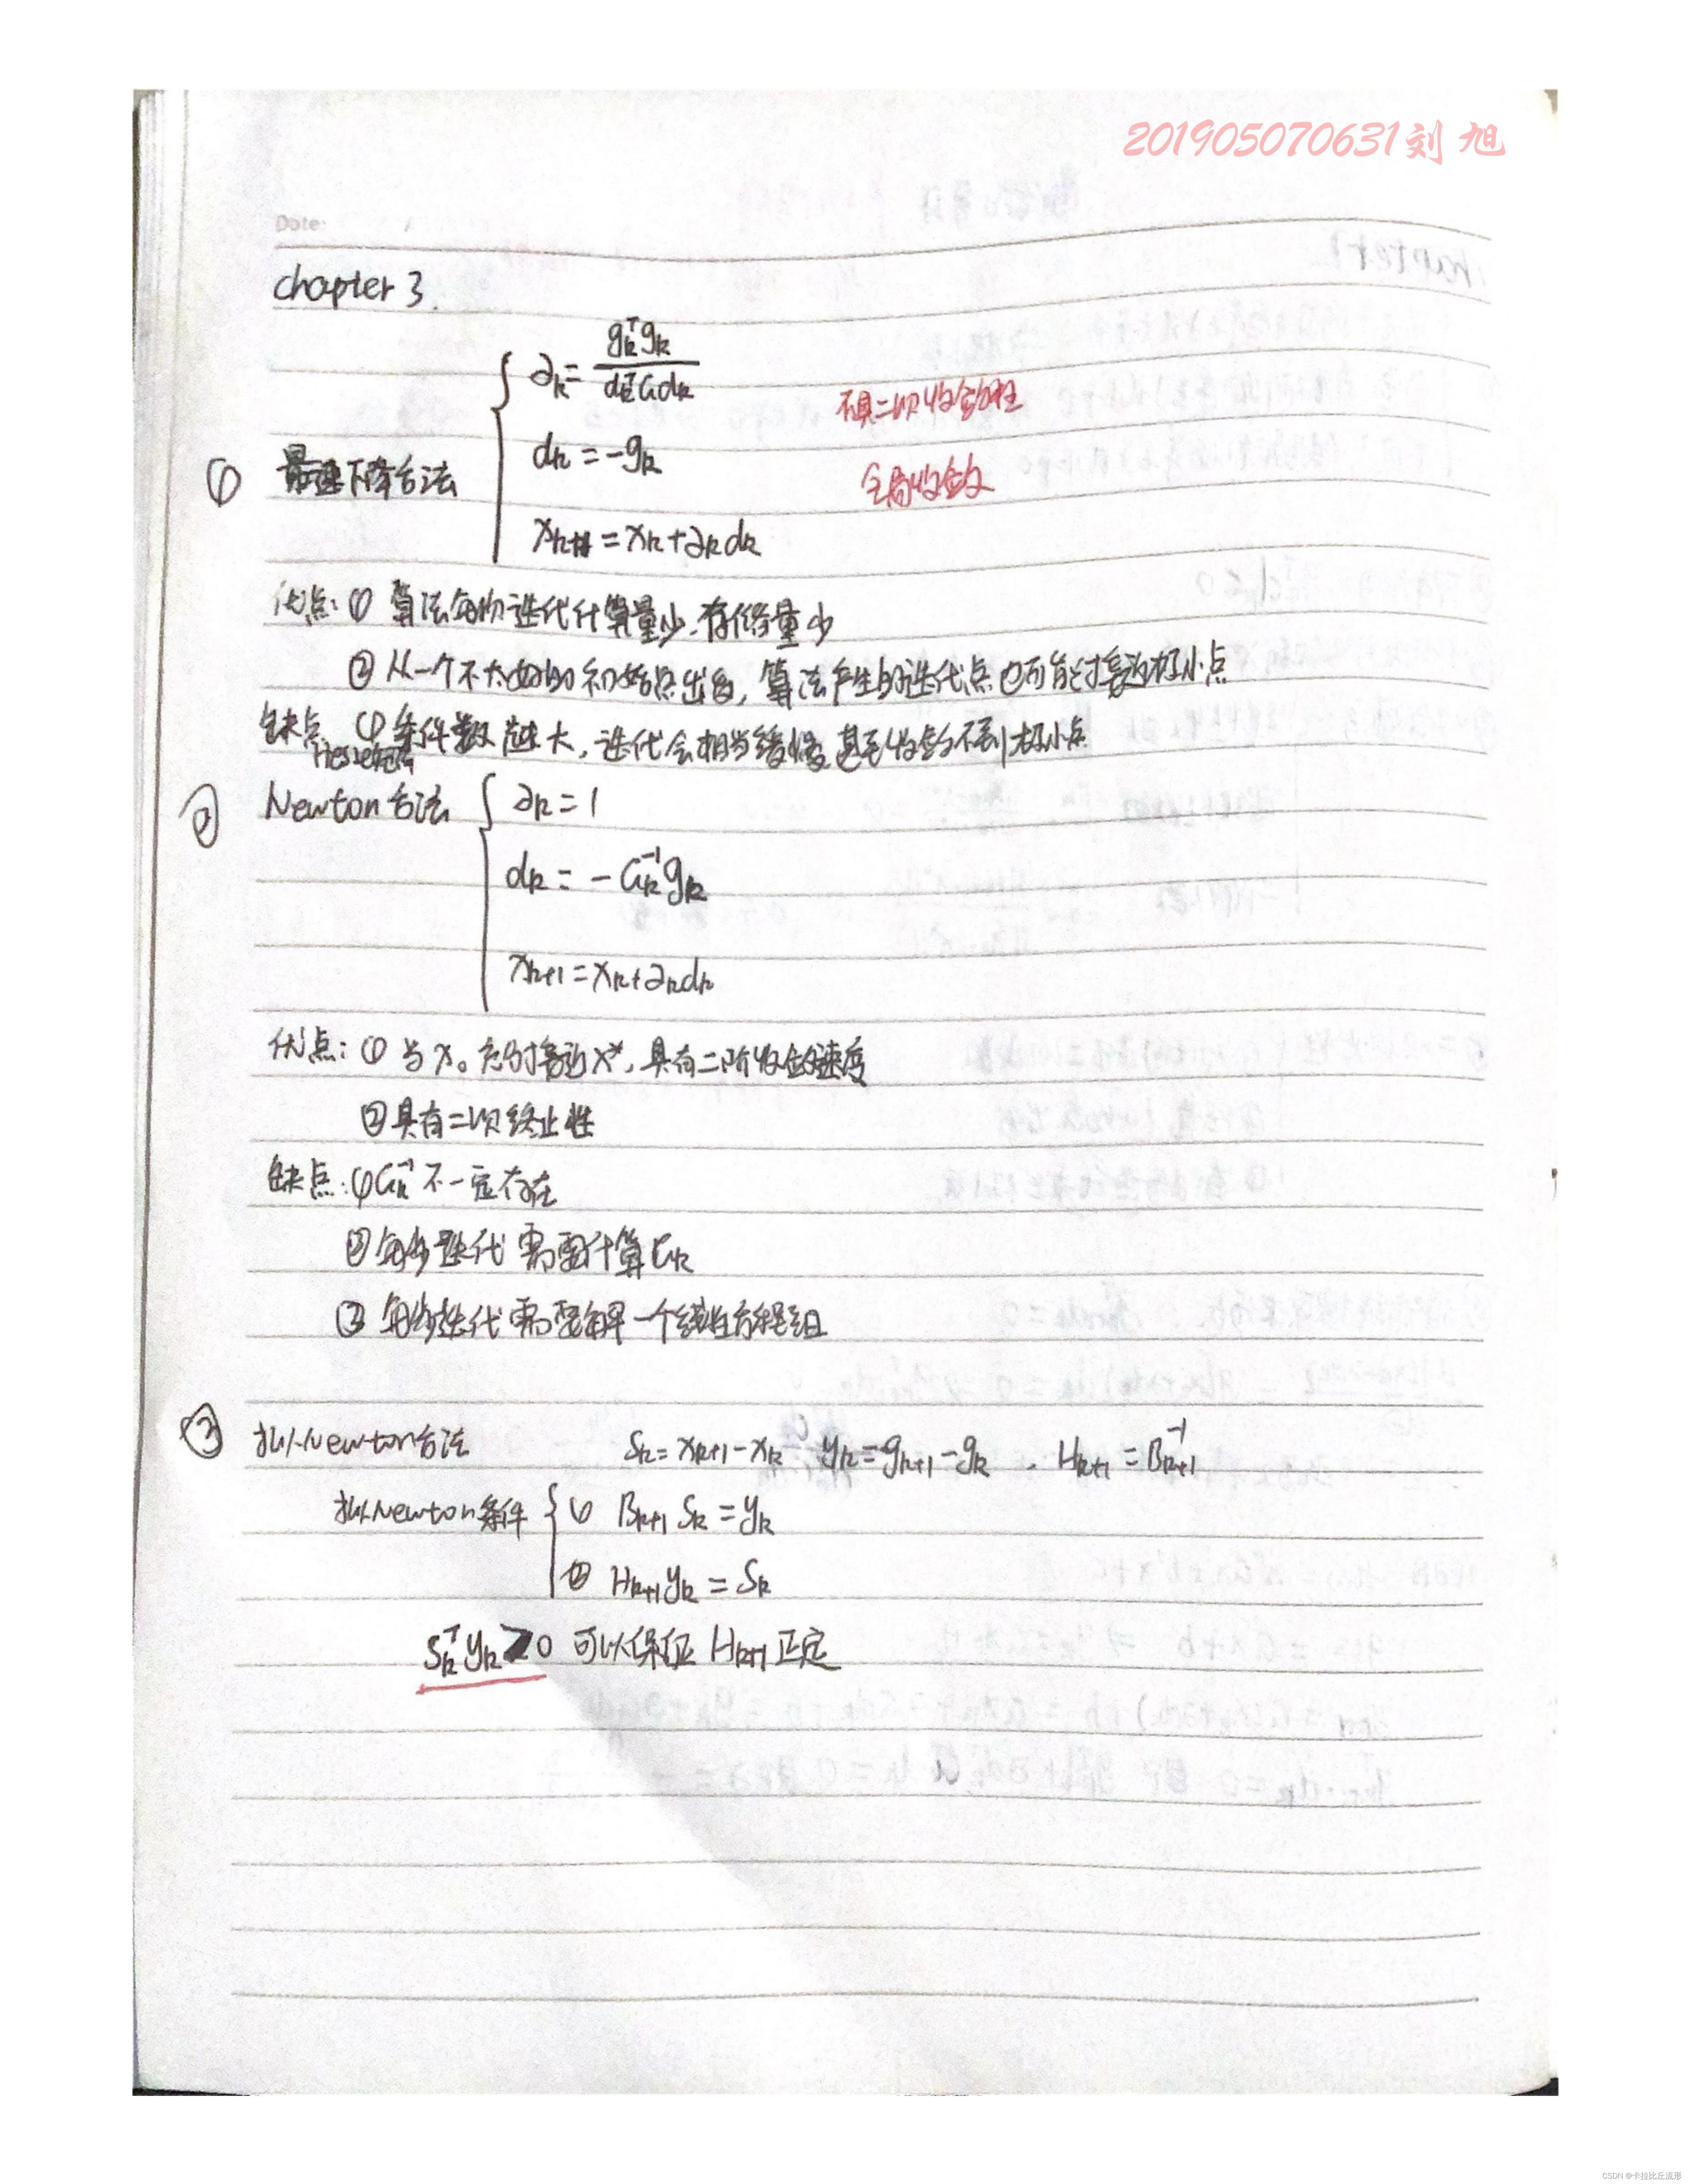 201905070631刘旭
Date:
chapter 3.
∂k = gkᵀgk / dkᵀGdk
不具二次收敛性
dk = -gk
① 最速下降方法
全局收敛
xk+1 = xk + ∂kdk
优点: ① 算法每次迭代计算量少,存储量少
② 从一个不太好的初始点出发, 算法产生的迭代点也可能接近极小点
缺点 ① 条件数越大, 迭代会相当缓慢, 甚至收敛不到极小点
Hesse矩阵
② Newton方法 ∂k = 1
dk = -Gk⁻¹gk
xk+1 = xk + ∂kdk
优点: ① 当x₀充分接近x*, 具有二阶收敛速度
②具有二次终止性
缺点: ①Gk⁻¹不一定存在
②每步迭代需要计算Gk
③ 每步迭代需要解一个线性方程组
③ 拟Newton方法 Sk = xk+1 - xk yk = gk+1 - gk . Hk+1 = Bk+1⁻¹
拟Newton条件 ① Bk+1 Sk = yk
② Hk+1yk = Sk
Skᵀyk > 0 可以保证 Hk+1 正定
CSDN @卡拉比丘流形